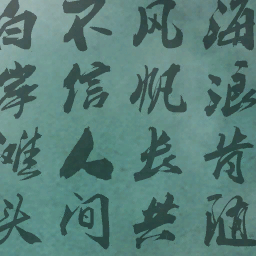 海浪肯随
风帆长共
不信人间
白岸滩头